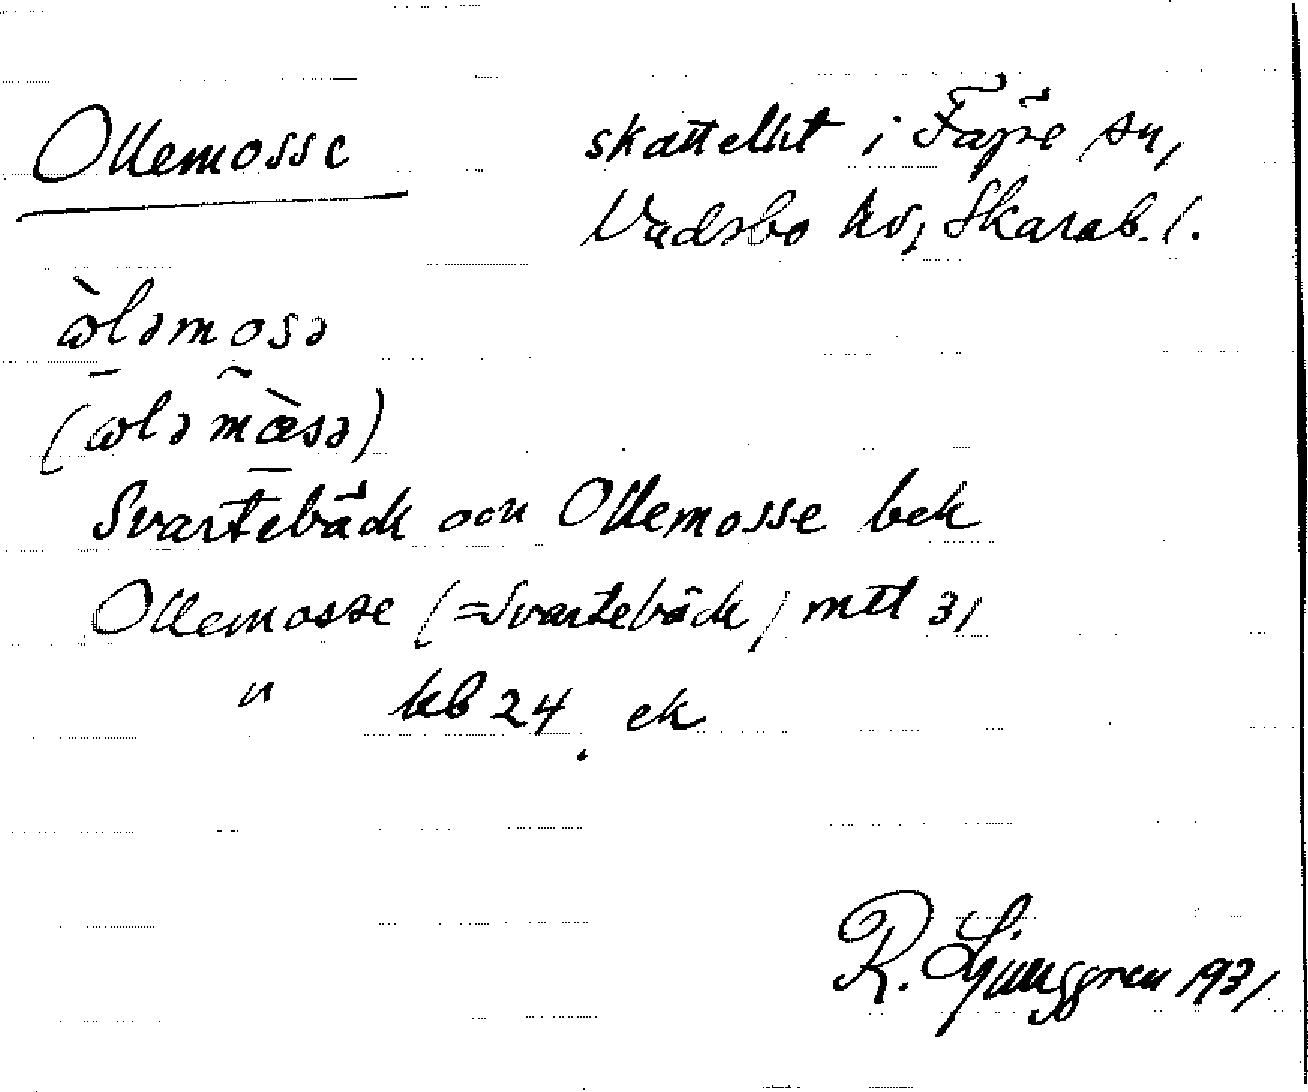 Ollemosse skattelht i Fägre sn,
Vadsbo hd, Skarab. l.
ὼləmosə
(ωləmὼsə)
Svartebäck och Ollemosse bek
Ollemosse (=Svartebäck) mtl 31
" kb 24 ek
R. Ljunggren 1931